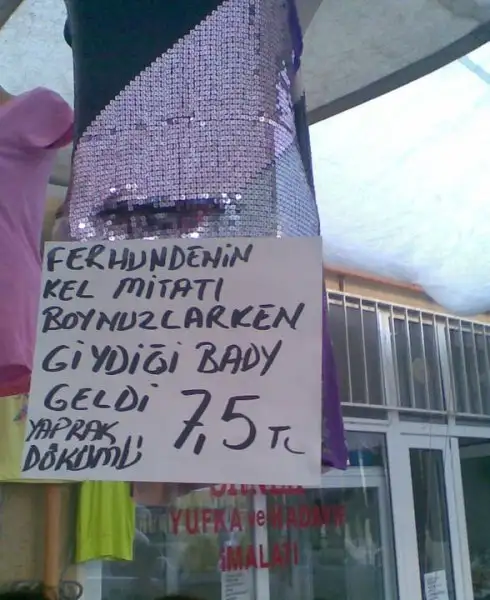 FERHUNDENİN
KEL MİTATI
BOYNUZLARKEN
GİYDİĞİ BADY
GELDİ
YAPRAK
DÖKÜMÜ
7,5 TL
YUFKA ve KADAYIF
İMALATI